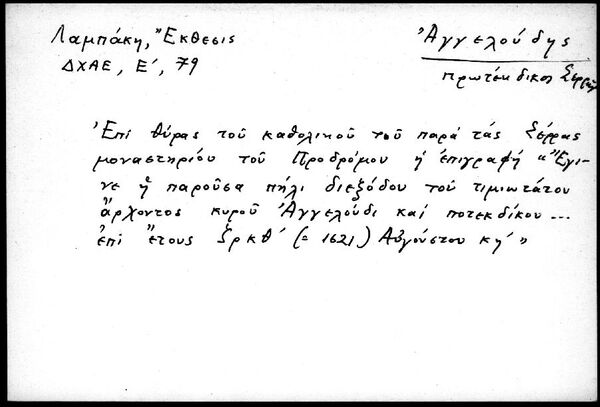 Λαμπάκη, Ἔκθεσις
ΔΧΑΕ, Ε', 79
Ἀγγελούδης
πρωτέκδικος Σερρῶν
Ἐπί θύρας τοῦ καθολικοῦ τοῦ παρά τάς Σέρρας
μοναστηρίου τοῦ Προδρόμου ἡ ἐπιγραφή "Ἔγι-
νε ἡ παροῦσα πήλι διεξόδου τοῦ τιμιωτάτου
ἄρχοντος κυροῦ Ἀγγελούδι καί ποτεκδίκου...
ἐπί ἔτους ξρκθ' (= 1621) Αὐγούστου κη'"